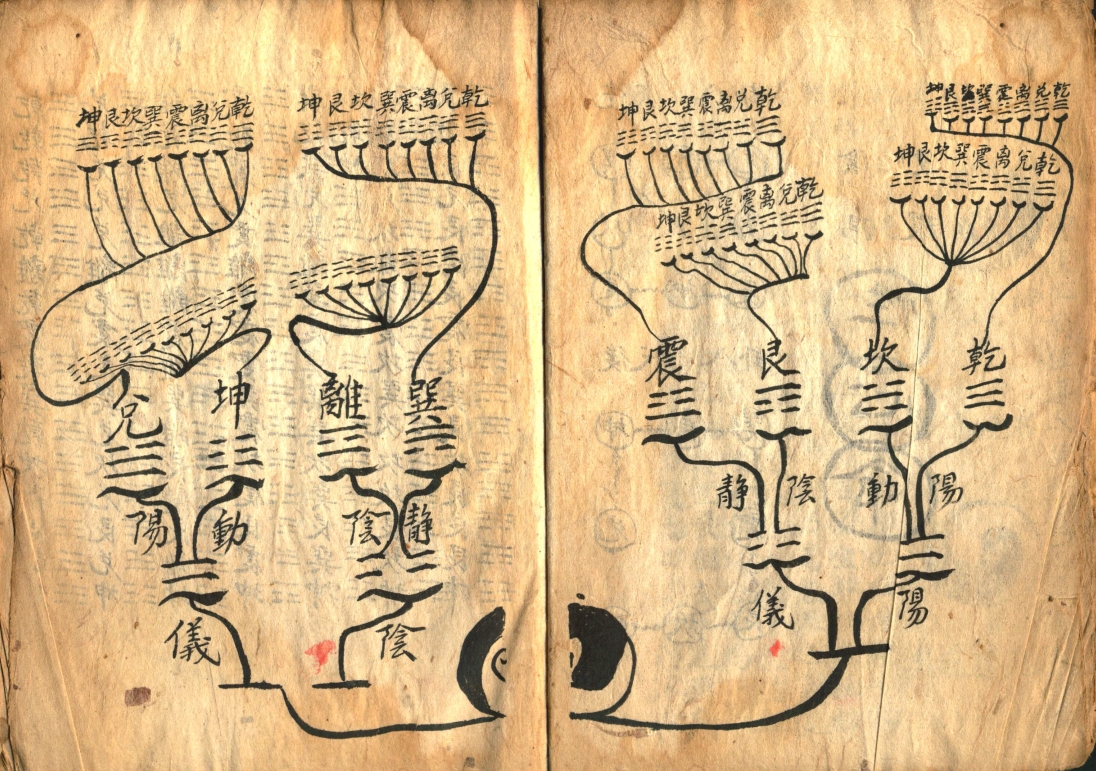 乾兌离震巽坎艮坤
乾兌离震巽坎艮坤
乾兌离震巽坎艮坤
乾兌离震巽坎艮坤
乾
坎
艮
震
陽
動
陰
静
陽
儀
乾兌离震巽坎艮坤
乾兌离震巽坎艮坤
巽
離
坤
兌
静
陰
動
陽
陰
儀